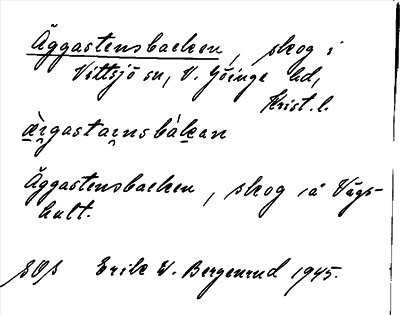 Äggastensbacken, skog i
Vittsjö sn, V. Göinge hd,
Krist. l.
ægastaensbákan
Äggastensbacken, skog å Vägs-
hult.
Erik W. Bergenrud 1945.